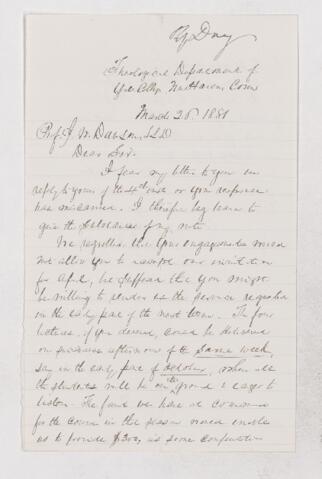 Theological Department of
Yale College, New Haven, Conn
March 26 1881
Prof J. W. Dawson, LLD
Dear Sir.
I fear my letter to you in
reply to yours of the 4th inst or your response
has miscarried. I therefore beg leave to
give the substance of my note
We regretted that your engagements would
not allow you to accept our invitation
for April, but supposed that you might
be willing to render us the service
in the early part of the next term. The four
lectures, if you desired, could be delivered
on successive afternoons of the same week,
say in the early part of October, when all
the students will be on the ground & eager to
listen. The fund we have at command
for the course in the season would enable
us to provide $200, as some compensation